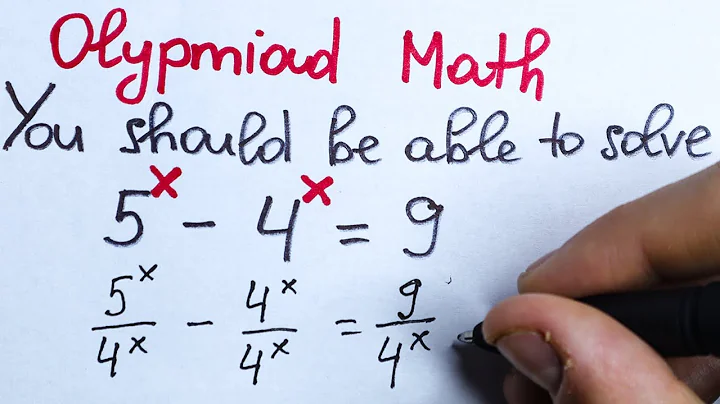 Olypmiad Math
You should be able to solve
5^x - 4^x = 9
5^x/4^x - 4^x/4^x = 9/4^x